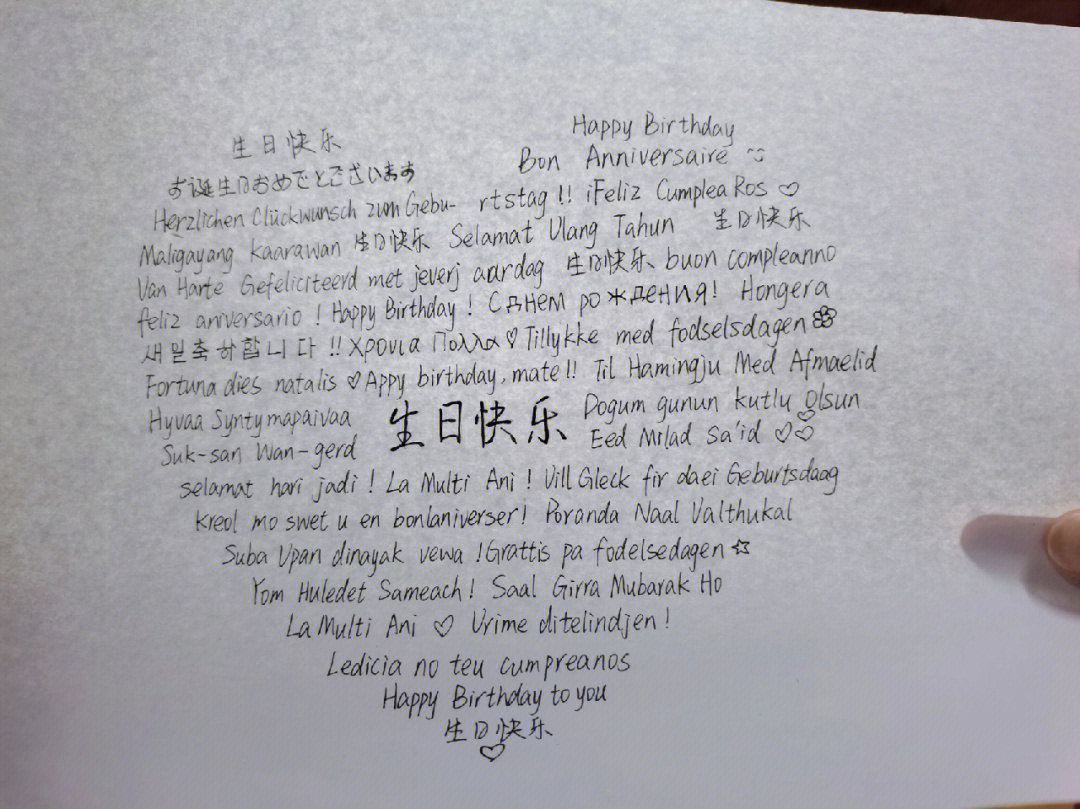 生日快乐 Happy Birthday
Bon Anniversaire
お誕生日おめでとございます
Herzlichen Clückwunsch zum Gebu- rtstag!! ¡Feliz Cumplea Ros ♡
Maligayang kaarawan 生日快乐 Selamat Ulang Tahun 生日快乐
Van Harte Gefeliciteerd met jeverj aardag 生日快乐 buon compleanno
feliz aniversario! Happy Birthday! С днем рождения! Hongera
새밀축하합니다!! Χρονια Πολλα ♡ Tillykke med fodselsdagen
Fortuna dies natalis ♡ Appy birthday, mate!! Til Hamingju Med Afmaelid
Hyvaa Syntymapaivaa 生日快乐 Dogum gunun kutlu Olsun
Suk-san Wan-gerd Eed Milad Sa'id ♡♡♡
selamat hari jadi! La Multi Ani! Vill Gleck fir daei Geburtsdaag
kreol mo swet u en bonlaniverser! Poranda Naal Valthukal
Suba Upan dinayak vewa! Grattis pa fodelsedagen ☆
Yom Huledet Sameach! Saal Girra Mubarak Ho
La Multi Ani ♡ Urime ditelindjen!
Ledicia no teu cumpreanos
Happy Birthday to you
生日快乐
♡